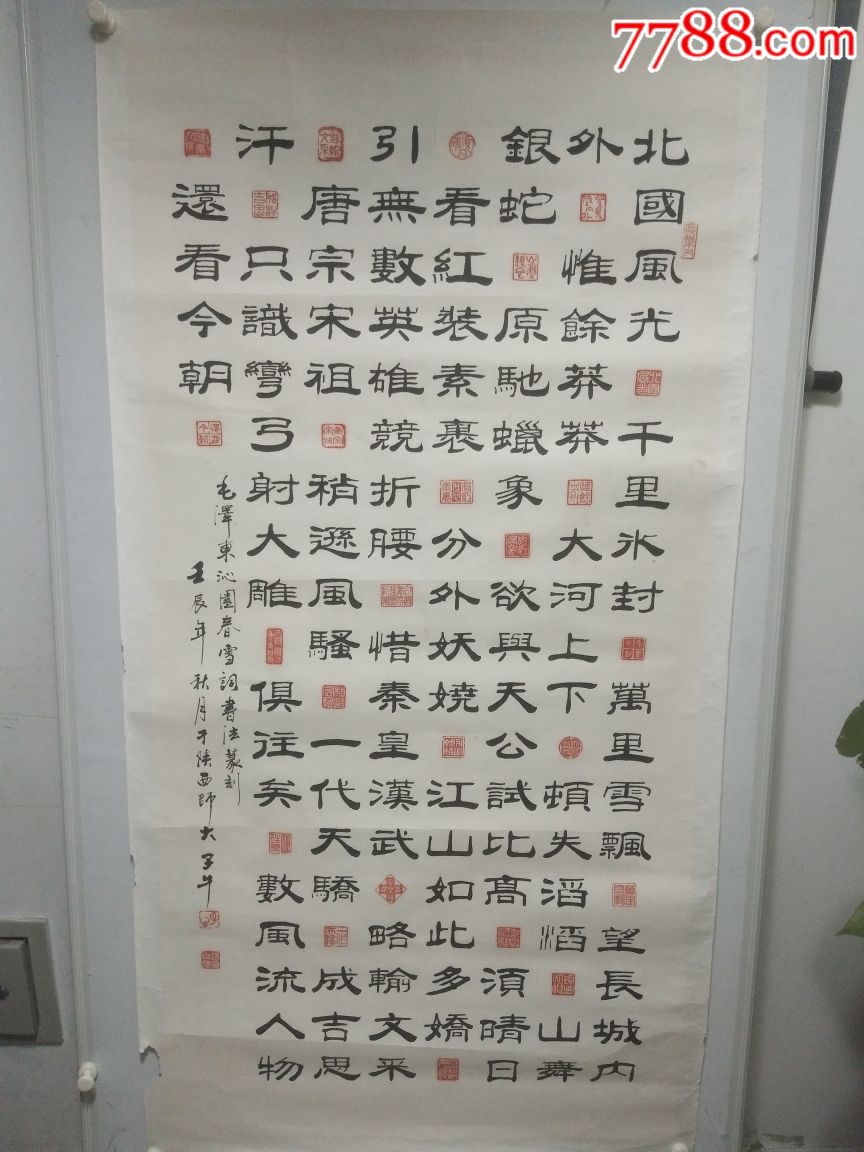 北國風光千里冰封萬里雪飄望長城内
外惟餘莽莽大河上下頓失滔滔山舞
銀蛇原馳蠟象欲與天公試比高須晴日
看紅裝素裹分外妖嬈江山如此多嬌
引無數英雄競折腰惜秦皇漢武略輸文采
唐宗宋祖稍遜風騷一代天驕成吉思
汗只識彎弓射大雕俱往矣數風流人物
還看今朝
毛澤東沁園春雪詞書法篆刻
壬辰年秋月于陕西師大
7788.com